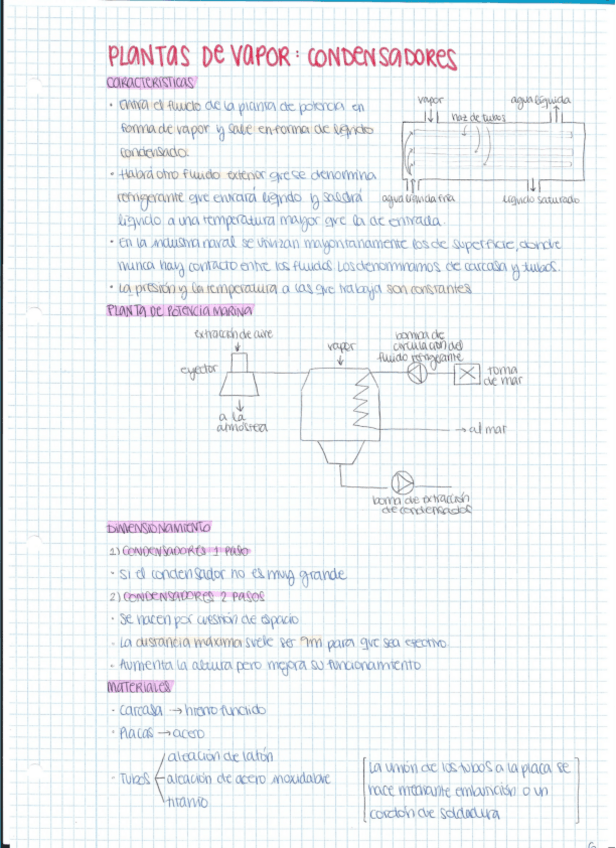 PLANTAS DE VAPOR: CONDENSADORES
CARACTERÍSTICAS
· entra el fluido de la planta de potencia en
forma de vapor y sale en forma de líquido
condensado.
· Habrá otro fluido exterior que se denomina
refrigerante que entrará líquido y saldrá
líquido a una temperatura mayor que la de entrada.
· en la industria naval se utilizan mayoritariamente los de superficie, donde
nunca hay contacto entre los fluidos. Los denominamos de carcasa y tubos.
· La presión y la temperatura a las que trabaja son constantes
vapor
agua líquida
haz de tubos
agua líquida fría
líquido saturado
PLANTA DE POTENCIA MARINA
extracción de aire
eyector
a la
atmósfera
vapor
bomba de
circulación del
fluido refrigerante
toma
de mar
→ al mar
bomba de extracción
de condensados
DIMENSIONAMIENTO
1) CONDENSADORES 1 PASO
· Si el condensador no es muy grande
2) CONDENSADORES 2 PASOS
· Se hacen por cuestión de espacio
· La distancia máxima suele ser 9m para que sea efectivo
· Aumenta la altura pero mejora su funcionamiento
MATERIALES
· Carcasa → hierro fundido
· Placas → acero
· Tubos
aleación de latón
aleación de acero inoxidable
titanio
La unión de los tubos a la placa se
hace mediante embutición o un
cordón de soldadura